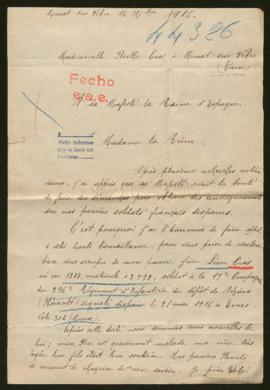 Murat sur Vèbre le 12 9bre 1916.
44326
Mademoiselle Berthe Cros à Murat sur Vèbre
(Tarn)
Fecho
e/a.e.
A Sa Majesté la Reine d'Espagne.
Madame la Reine,
Après plusieurs recherches restées
vaines, j'ai appris que sa Majesté avait la bonté
de faire des démarches pour obtenir des renseignements
sur nos pauvres soldats français disparus.
C'est pourquoi j'ai l'honneur de faire appel
à votre haute bienveillance pour vous prier de vouloir
bien vous occuper de mon pauvre frère Léon Cros
né en 1878, matricule soldat à la 19e Compagnie
du 296e Régiment d'Infanterie du dépôt de Béziers
(Hérault) signalé disparu le 21 mai 1916 à
côte
Après cette date nous sommes sans nouvelles de
lui; mon Père est gravement malade une mère très
âgée son fils était leur soutien. Mes pauvres Parents
se meurent de chagrin de rien savoir. Je prie